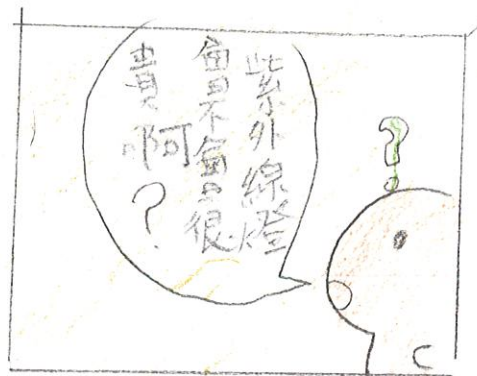 紫外線燈
會不會很
貴啊？
?